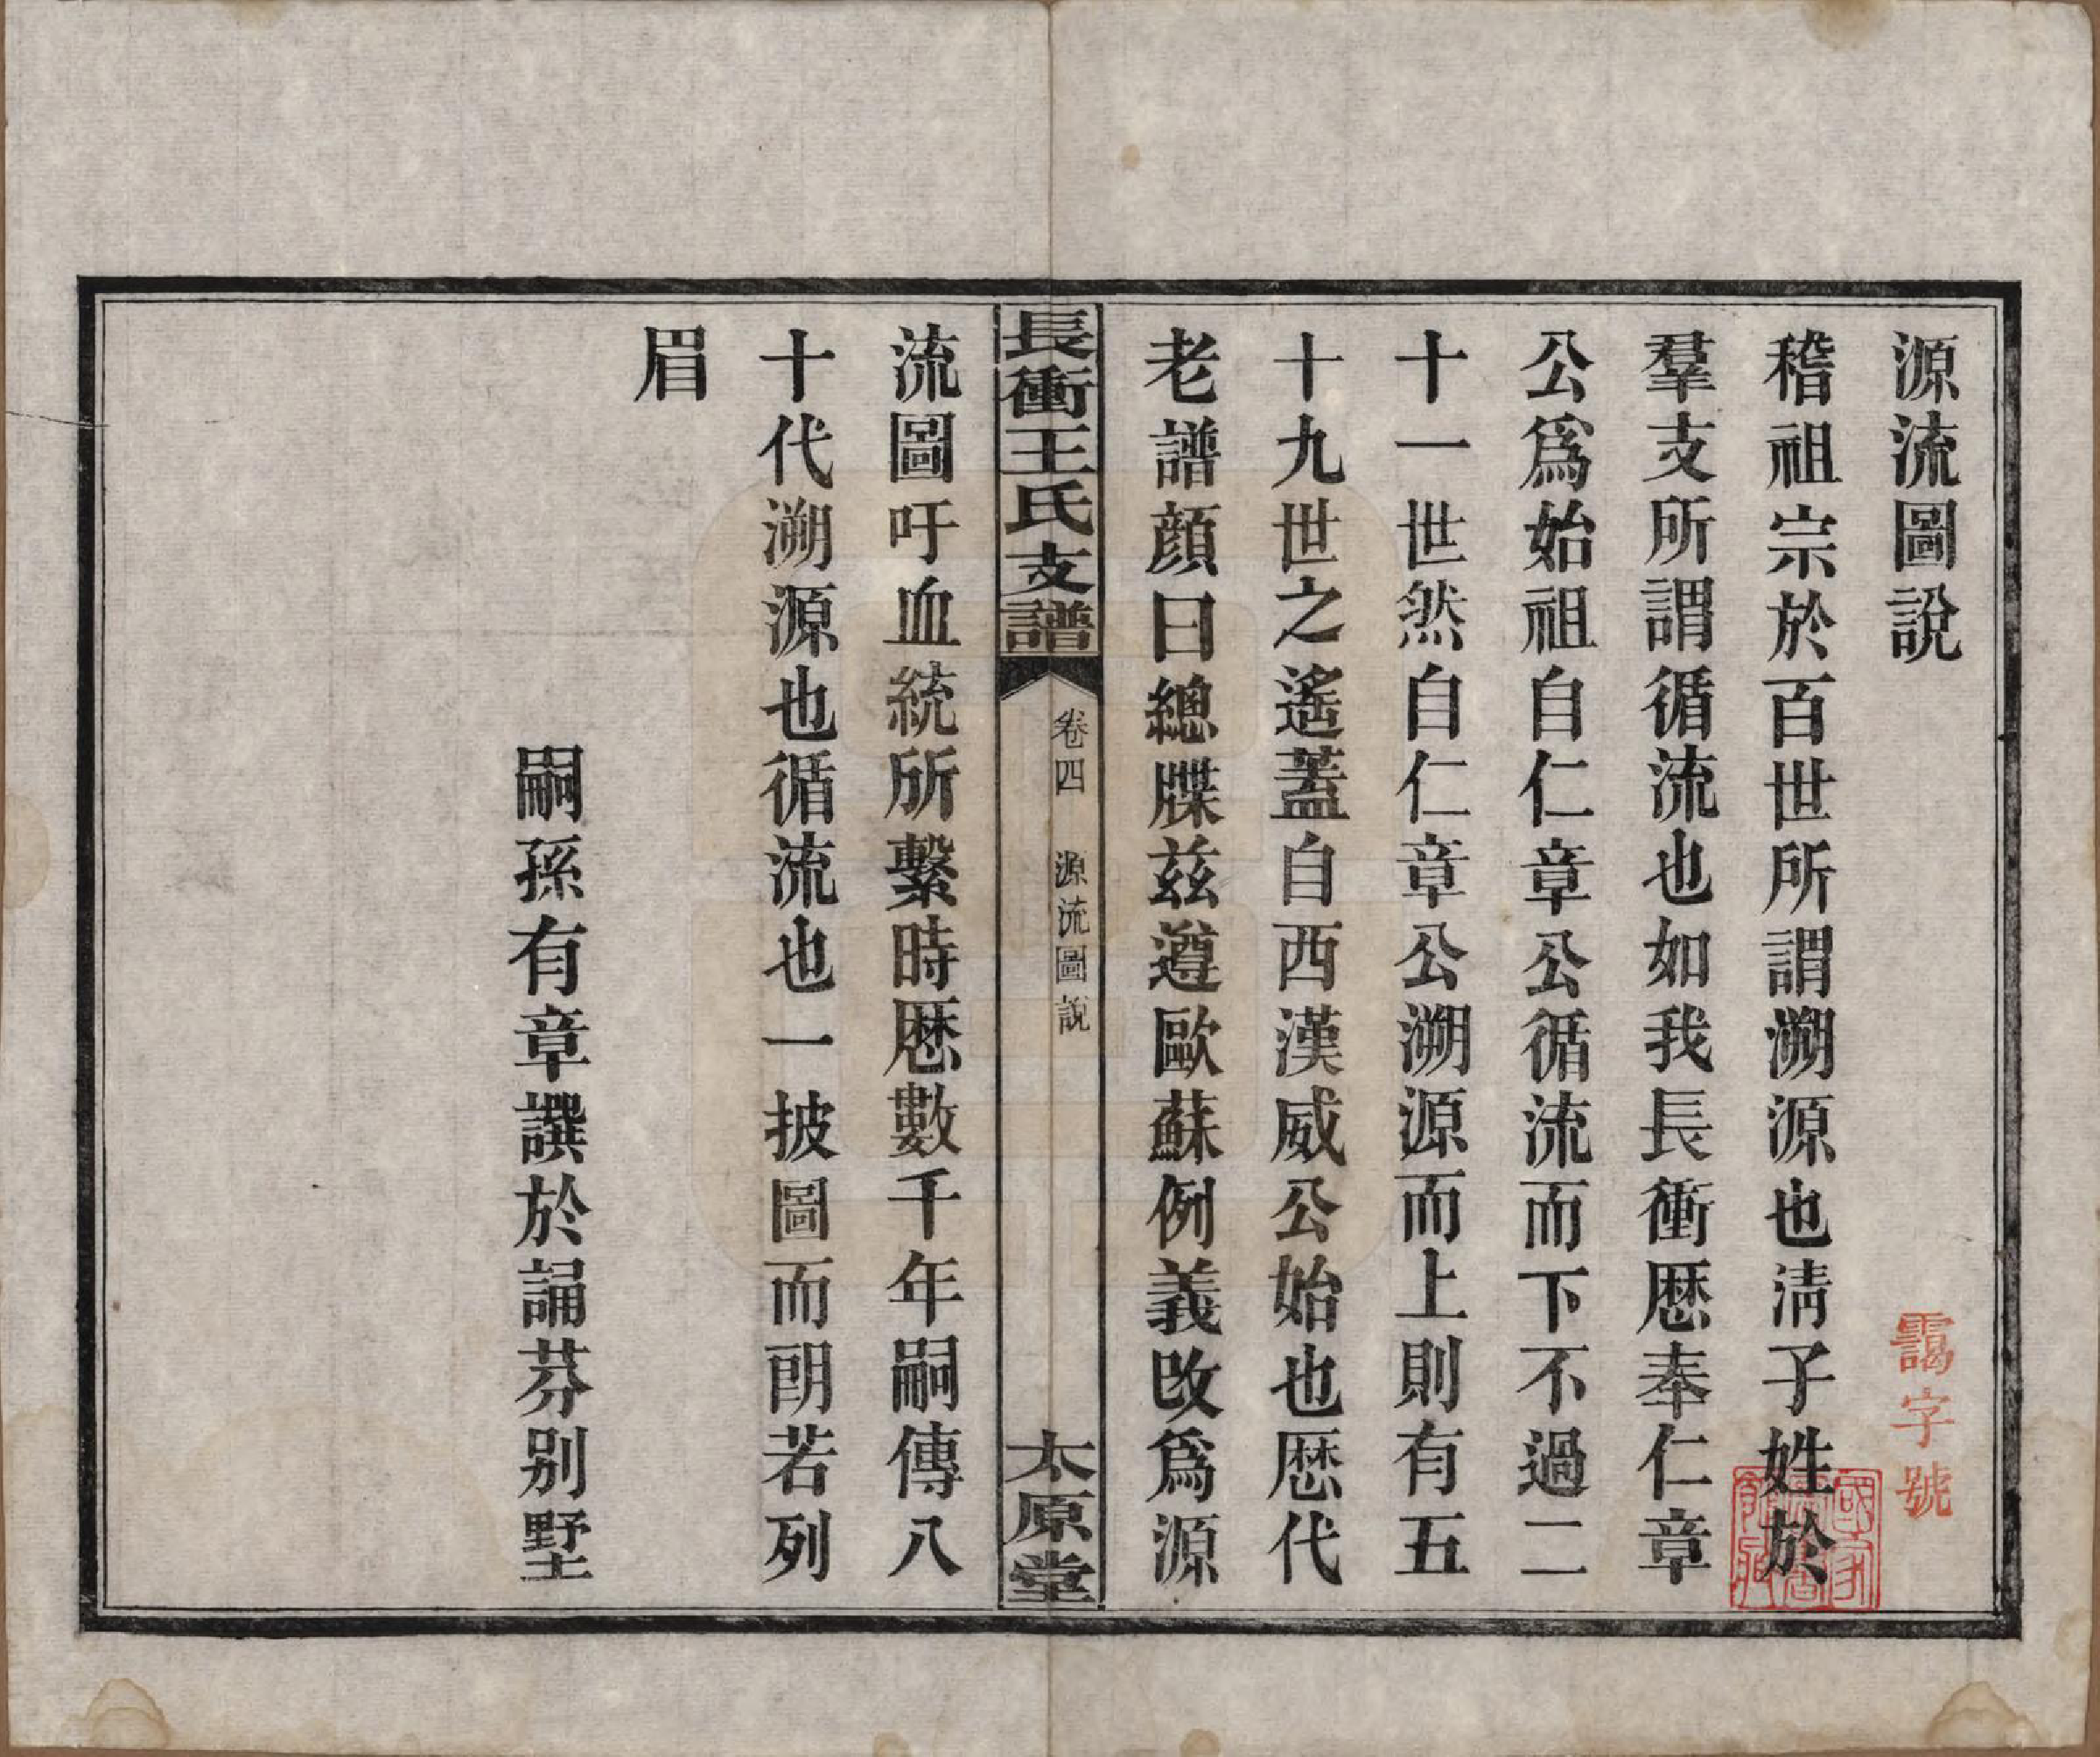 源流圖說
稽祖宗於百世所謂溯源也淸子姓於
羣支所謂循流也如我長衝厯奉仁章
公爲始祖自仁章公循流而下不過二
十一世然自仁章公溯源而上則有五
十九世之遙蓋自西漢威公始也厯代
老譜顔曰總牒茲遵歐蘇例義改爲源
長衝王氏支譜
卷四 源流圖說
太原堂
流圖吁血統所繫時厯數千年嗣傳八
十代溯源也循流也一披圖而朗若列
眉
嗣孫有章譔於誦芬别墅
靄字號
國家圖書館藏